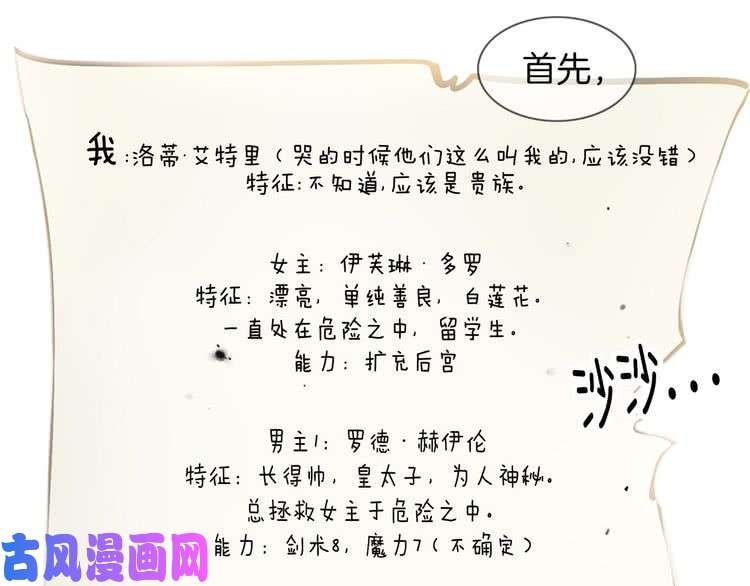 首先,
我:洛蒂·艾特里(哭的时候他们这么叫我的,应该没错)
特征:不知道,应该是贵族。
女主: 伊芙琳·多罗
特征: 漂亮, 单纯善良, 白莲花。
一直处在危险之中, 留学生。
能力: 扩充后宫
沙沙...
男主1: 罗德·赫伊伦
特征: 长得帅, 皇太子, 为人神秘。
总拯救女主于危险之中。
能力: 剑术8, 魔力7(不确定)
古风漫画网